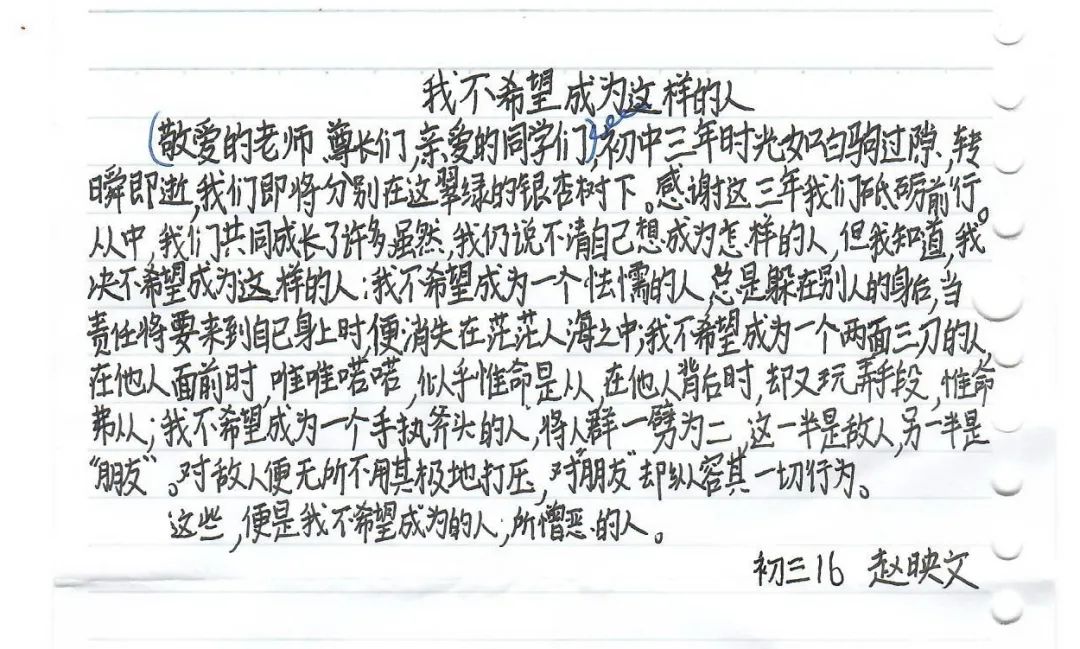 我不希望成为这样的人
(敬爱的老师 尊长们,亲爱的同学们,)初中三年时光如白驹过隙,转
瞬即逝,我们即将分别在这翠绿的银杏树下。感谢这三年我们砥砺前行。
从中,我们共同成长了许多虽然,我仍说不清自己想成为怎样的人,但我知道,我
决不希望成为这样的人:我不希望成为一个怯懦的人,总是躲在别人的身后,当
责任将要来到自己身上时,便消失在茫茫人海之中;我不希望成为一个两面三刀的人,
在他人面前时,唯唯喏喏,似乎惟命是从,在他人背后时,却又玩弄手段,惟命
弗从;我不希望成为一个手执斧头的人,将人群一劈为二,这一半是敌人,另一半是
“朋友”。对敌人便无所不用其极地打压,对“朋友”却纵容其一切行为。
这些,便是我不希望成为的人,所憎恶的人。
初三16 赵映文